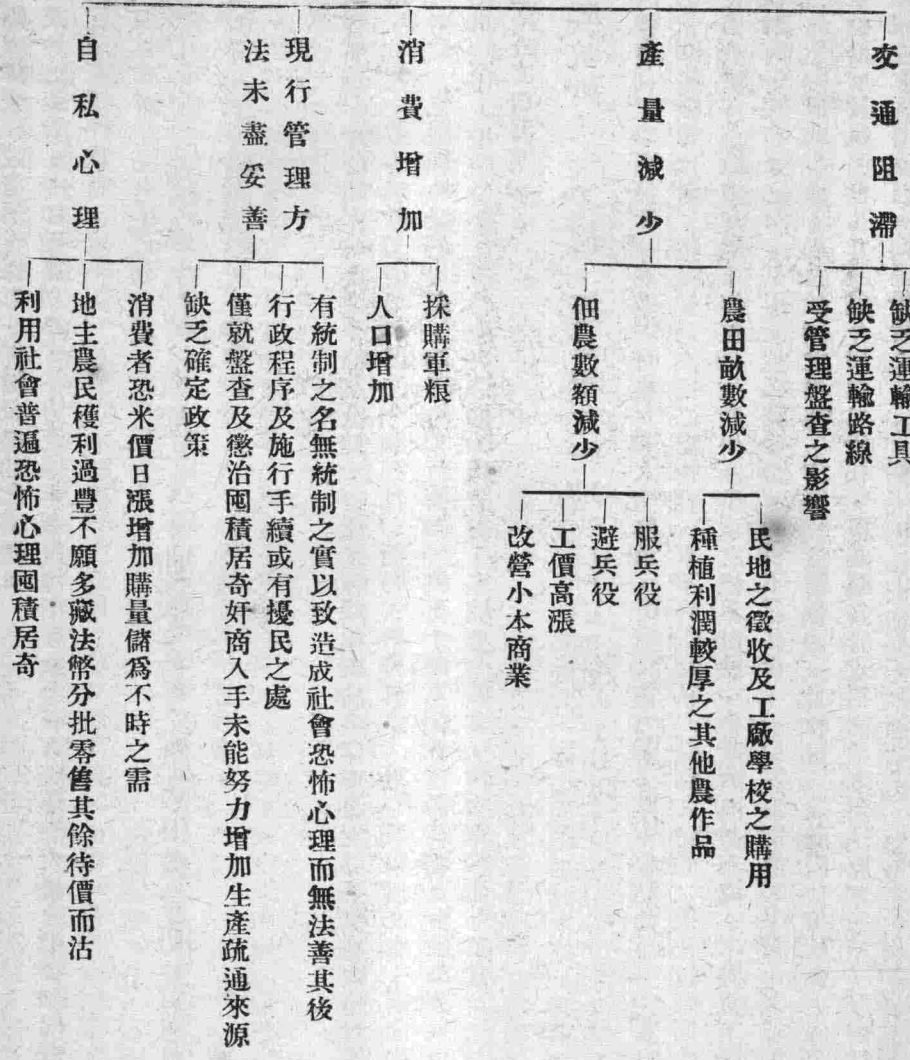 交通阻滯
缺乏運輸工具
缺乏運輸路線
受管理盤查之影響
產量減少
農田畝數減少
民地之徵收及工廠學校之購用
種植利潤較厚之其他農作品
佃農數額減少
服兵役
避兵役
工價高漲
改營小本商業
消費增加
採購軍粮
人口增加
現行管理方
法未盡妥善
有統制之名無統制之實以致造成社會恐怖心理而無法善其後
行政程序及施行手續或有擾民之處
僅就盤查及懲治囤積居奇奸商入手未能努力增加生產疏通來源
缺乏確定政策
自私心理
消費者恐米價日漲增加購量儲爲不時之需
地主農民穫利過豐不願多藏法幣分批零售其餘待價而沽
利用社會普遍恐怖心理囤積居奇